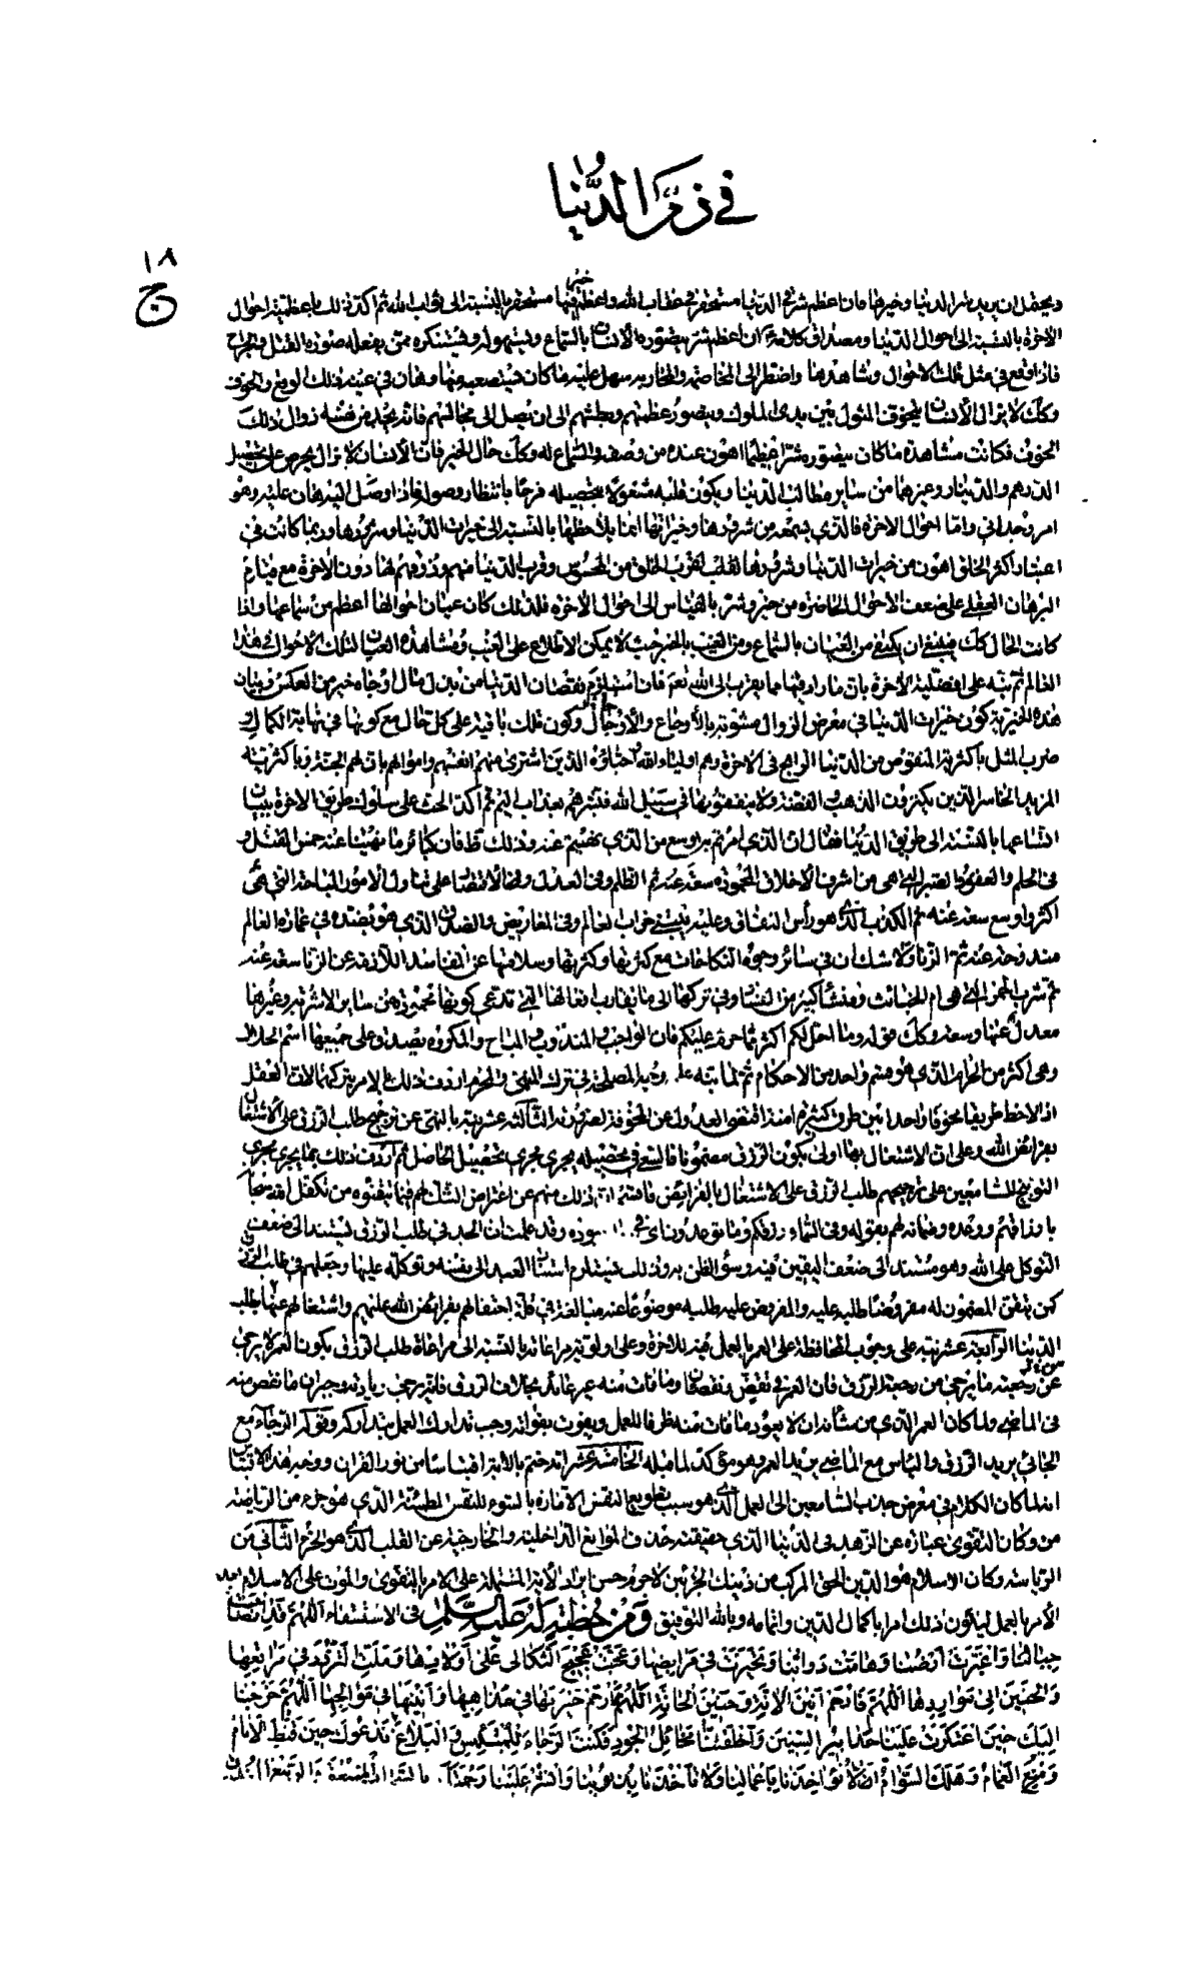 في ذم الدنيا
١٨
ج
ويحتمل ان يريد شر الدنيا وخيرها فان اعظم شر في الدنيا مستحقر في عقاب الله واعظم خير فيها مستحقر بالنسبة الى ثواب الله ثم اكد ذلك باعظمية احوال
الاخرة بالنسبة الى احوال الدنيا ومصداق كلامه ان اعظم شر يتصوره الانسان بالسماع ويستهوله ويستنكره ممن يفعله صورة القتل والجراح
فاذا وقع في مثل تلك الاحوال وشاهدها واضطر الى المخاصمة والمحاربة سهل عليه ما كان يستصعبه منها وهان في عينه ذلك الوقع والخوف
وكك لا يزال الانسان يتخوف المثول بين يدي الملوك ويتصور عظمتهم وبطشهم الى ان يصل الى مجالسهم فانه يجد من نفسه زوال ذلك
الخوف فكانت مشاهدة ما كان يتصوره شرا عظيما اهون عنده من وصفه والسماع له وكك حال الخير فان الانسان لا يزال يحرص على تحصيل
الدرهم والدينار وغيرهما من ساير مطالب الدنيا ويكون قلبه مشغولا بتحصيله فرحا بانتظار وصوله فاذا وصل اليه هان عليه وهو
امر وجداني واما احوال الاخرة فالذي يسمعه من شرورها وخيراتها انما يلاحظها بالنسبة الى خيرات الدنيا وشرورها وربما كانت في
اعتبار اكثر الخلق اهون من خيرات الدنيا وشرورها لقرب الخلق من المحسوس وقرب الدنيا منهم وذوقهم لها دون الاخرة مع قيام
البرهان العقلي على ضعف الاحوال الحاضرة من خير وشر بالقياس الى احوال الاخرة فلذلك كان عيان احوالها اعظم من سماعها واذا
كانت الحال كك فينبغي ان يكتفى من العيان بالسماع ومن الغيب بالخبر حيث لا يمكن الاطلاع على الغيب ومشاهدة العيان لتلك الاحوال في هذا
العالم ثم نبه على افضلية الاخرة بان ما زاد فيها مما يقرب الى الله نعم فان استلزم نقصان الدنيا من بذل مال او جاه خير من العكس وبيان
هذه الخيرية كون خيرات الدنيا في معرض الزوال مشوبة بالاوجاع والاوجال وكون تلك باقية على كل حال مع كونها في نهاية الكمال و
ضرب المثل باكثرية المنقوص من الدنيا الرابح في الاخرة وهم اولياء الله واحباؤه الذين اشترى منهم انفسهم واموالهم بان لهم الجنة وباكثرية
المزيد الخاسر الذين يكنزون الذهب والفضة ولا ينفقونها في سبيل الله فبشرهم بعذاب اليم ثم اكد الحث على سلوك طريق الاخرة ببيان
اتساعها بالنسبة الى طريق الدنيا فقال ان الذي امرتم به اوسع من الذي نهيتم عنه وذلك ظ فان كبائر ما نهينا عنه خمس القتل و
في الحلم والعفو والصبر التي هي من اشرف الاخلاق المحمودة سعة عنه ثم الظلم وفي العدل وفي الاقتصار على تناول الامور المباحة التي هي
اكثر واوسع سعة عنه ثم الكذب الذي هو رأس النفاق وعليه يبتني خراب العالم وفي المعاريض والصدق الذي هو ضده في عمارة العالم
مندوحة عنه ثم الزنا ولا شك ان في سائر وجوه النكاحات مع كثرتها وسلامتها عن المفاسد اللازمة عن الزنا سعة عنه
ثم شرب الخمر التي هي ام الخبائث ومنشأ كثير من الفساد وفي تركها الى ما يقارب افعالها التي تدعي كونها محمودة من ساير الاشربة وغيرها
معدل عنها وسعة وكك قوله وما احل لكم اكثر مما حرم عليكم فان الواجب والمندوب والمباح والمكروه يصدق على جميعها اسم الحلال
وهي اكثر من الحرام الذي هو قسم واحد من الاحكام ثم لما نبه على وجه المصلحة في ترك المنهي والمحرم اردف ذلك بالامر بتركهما لان العقل
اذا لاحظ طريقا مخوفا واحدا بين طرق كثيرة امنة اقتضى العدول عن المخوف لضرورته الثالثة عشر نبه بالنهي عن ترجيح طلب الرزق على الاشتغال
بفرائض الله وعلى ان الاشتغال بها اولى بكون الرزق مضمونا فالسعي في تحصيله يجري مجرى تحصيل الحاصل ثم اردف ذلك بما يجري مجرى
التوبيخ للسامعين على ترجيحهم طلب الرزق على الاشتغال بالفرائض فاقسم ان ذلك منهم عن اعتراض الشك لهم فيما تيقنوه من تكفل الله تعالى
بارزاقهم ووعده وضمانه لهم بقوله وفي السماء رزقكم وما توعدون وقد علمت ان الجد في طلب الرزق يستند الى ضعف
التوكل على الله وهو مستند الى ضعف اليقين فيه وسوء الظن به وذلك يستلزم استناد العبد الى نفسه وتوكله عليها وجعلهم في طلب الرزق
كمن يتقن المضمون له مفروضا طلبه عليه والمفروض عليه طلبه موضوعا عنه مبالغة في قلة احتفالهم بفرائض الله عليهم واشتغالهم عنها بطلب
الدنيا الرابعة عشر نبه على وجوب المحافظة على العمر بالعمل فيه للاخرة وعلى اولوية مراعاته بالنسبة الى مراعاة طلب الرزق بكون العمر لا يرجى
من رجعته ما يرجى من رجعة الرزق فان العمر في تقض ونقصان وما فات منه غير عائد بخلاف الرزق فانه يرجى زيادته وجبران ما نقص منه
في الماضي ولما كان العمر الذي من شأنه ان لا يعود ما فات منه ظرفا للعمل ويفوت بفواته وجب تدارك العمل بتداركه وقوله الرجاء مع
الجائي يريد الرزق والياس مع الماضي يريد العمر وهو مؤكد لما قبله الخامسة عشر انه ختم بالاية اقتباسا من نور القران ووجه هذا الاقتباس
انه لما كان الكلام في معرض جذب السامعين الى العمل الذي هو سبب تطويع النفس الامارة بالسوء للنفس المطمئنة الذي هو جزء من الرياضة
من وكان التقوى عبارة عن الزهد في الدنيا الذي حقيقته حذف الموانع الداخلية والخارجية عن القلب الذي هو الجزء الثاني من
الرياضة وكان الاسلام هو الدين الحق المركب من ذينك الجزئين لا جرم حسن ايراد الاية المشتملة على الامر بالتقوى والموت على الاسلام بعد
الامر بالعمل ليكون ذلك امرا باكمال الدين واتمامه وبالله التوفيق ومن خطبة له عليه السلام في الاستسقاء اللهم قد انصاحت
جبالنا واغبرت ارضنا وهامت دوابنا وتحيرت في مرابضها وعجت عجيج الثكالى على اولادها وملت التردد في مراتعها
والحنين الى مواردها اللهم فارحم انين الانة وحنين الحانة اللهم فارحم حيرتها في مذاهبها وانينها في موالجها اللهم خرجنا
اليك حين اعتكرت علينا حدابير السنين واخلفتنا مخائل الجود فكنت الرجاء للمبتئس والبلاغ للملتمس ندعوك حين قنط الانام
ومنع الغمام وهلك السوام ان لا تؤاخذنا باعمالنا ولا تأخذنا بذنوبنا وانشر علينا رحمتك بالسحاب المنبعق والربيع المغدق